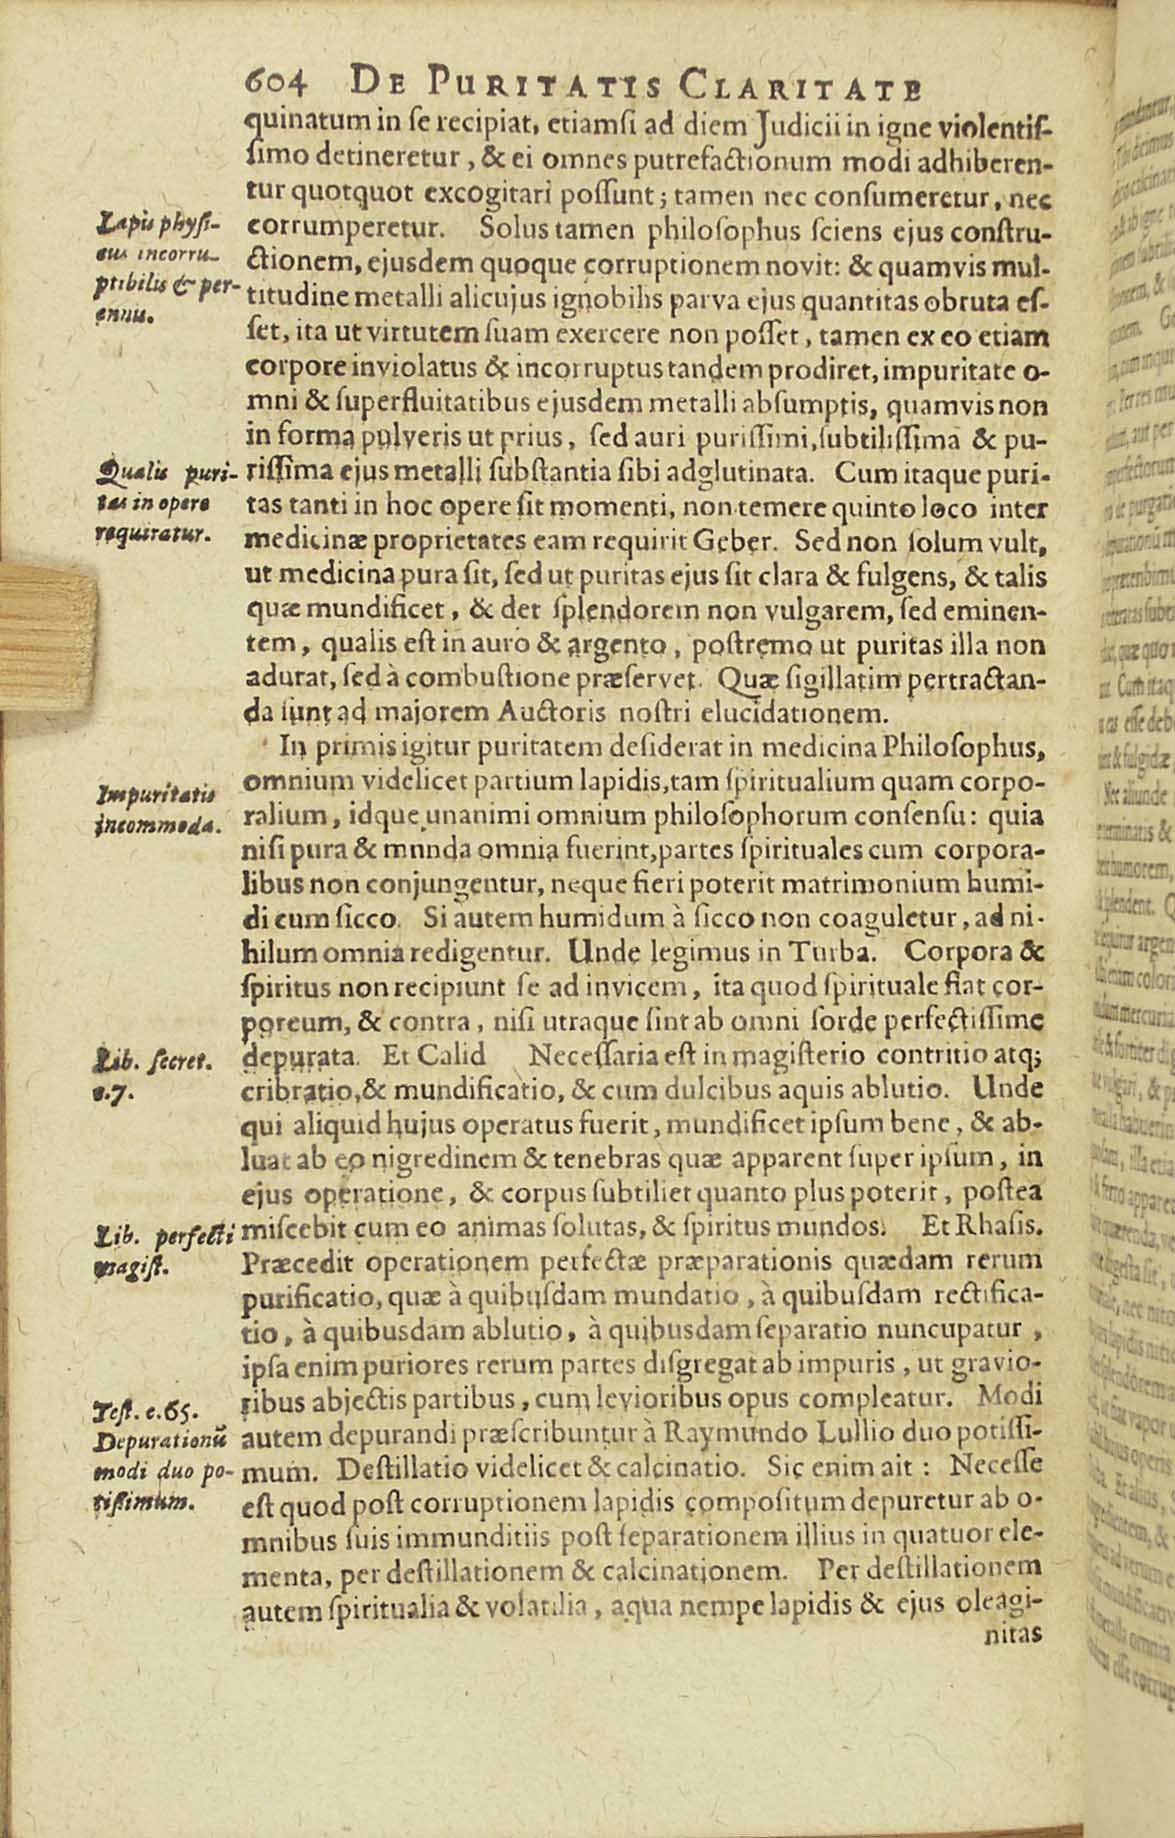 604 DE PURITATIS CLARITATE
quinatum in se recipiat, etiamsi ad diem Judicii in igne violentis-
simo detineretur, & ei omnes putrefactionum modi adhiberen-
tur quotquot excogitari possunt; tamen nec consumeretur, nec
corrumperetur. Solus tamen philosophus sciens ejus constru-
ctionem, ejusdem quoque corruptionem novit: & quamvis mul-
titudine metalli alicujus ignobilis parva ejus quantitas obruta es-
set, ita ut virtutem suam exercere non posset, tamen ex eo etiam
corpore inviolatus & incorruptus tandem prodiret, impuritate o-
mni & superfluitatibus ejusdem metalli absumptis, quamvis non
in forma pulveris ut prius, sed auri purissimi, subtilissima & pu-
rissima ejus metalli substantia sibi adglutinata. Cum itaque puri-
tas tanti in hoc opere sit momenti, non temere quinto loco inter
medicinæ proprietates eam requirit Geber. Sed non solum vult,
ut medicina pura sit, sed ut puritas ejus sit clara & fulgens, & talis
quæ mundificet, & det splendorem non vulgarem, sed eminen-
tem, qualis est in auro & argento, postremo ut puritas illa non
adurat, sed à combustione præservet. Quæ sigillatim pertractan-
da sunt ad majorem Auctoris nostri elucidationem.
In primis igitur puritatem desiderat in medicina Philosophus,
omnium videlicet partium lapidis, tam spiritualium quam corpo-
ralium, idque unanimi omnium philosophorum consensu: quia
nisi pura & munda omnia fuerint, partes spirituales cum corpora-
libus non conjungentur, neque fieri poterit matrimonium humi-
di cum sicco. Si autem humidum à sicco non coaguletur, ad ni-
hilum omnia redigentur. Unde legimus in Turba. Corpora &
spiritus non recipiunt se ad invicem, ita quod spirituale fiat cor-
poreum, & contra, nisi utraque sint ab omni sorde perfectissime
depurata. Et Calid Necessaria est in magisterio contritio atq;
cribratio, & mundificatio, & cum dulcibus aquis ablutio. Unde
qui aliquid hujus operatus fuerit, mundificet ipsum bene, & ab-
luat ab eo nigredinem & tenebras quæ apparent super ipsum, in
ejus operatione, & corpus subtiliet quanto plus poterit, postea
miscebit cum eo animas solutas, & spiritus mundos. Et Rhasis.
Præcedit operationem perfectæ præparationis quædam rerum
purificatio, quæ à quibusdam mundatio, à quibusdam rectifica-
tio, à quibusdam ablutio, à quibusdam separatio nuncupatur,
ipsa enim puriores rerum partes disgregat ab impuris, ut gravio-
ribus abjectis partibus, cum levioribus opus compleatur. Modi
autem depurandi præscribuntur à Raymundo Lullio duo potissi-
mum. Destillatio videlicet & calcinatio. Sic enim ait: Necesse
est quod post corruptionem lapidis compositum depuretur ab o-
mnibus suis immunditiis post separationem illius in quatuor ele-
menta, per destillationem & calcinationem. Per destillationem
autem spiritualia & volatilia, aqua nempe lapidis & ejus oleagi-
nitas
Lapis physi-
cus incorru-
ptibilis & per-
ennis.
Qualis puri-
tas in opere
requiratur.
Impuritatis
incommoda.
Lib. secret.
c. 7.
Lib. perfecti
magist.
Test. c. 65.
Depurationū
modi duo po-
tissimùm.